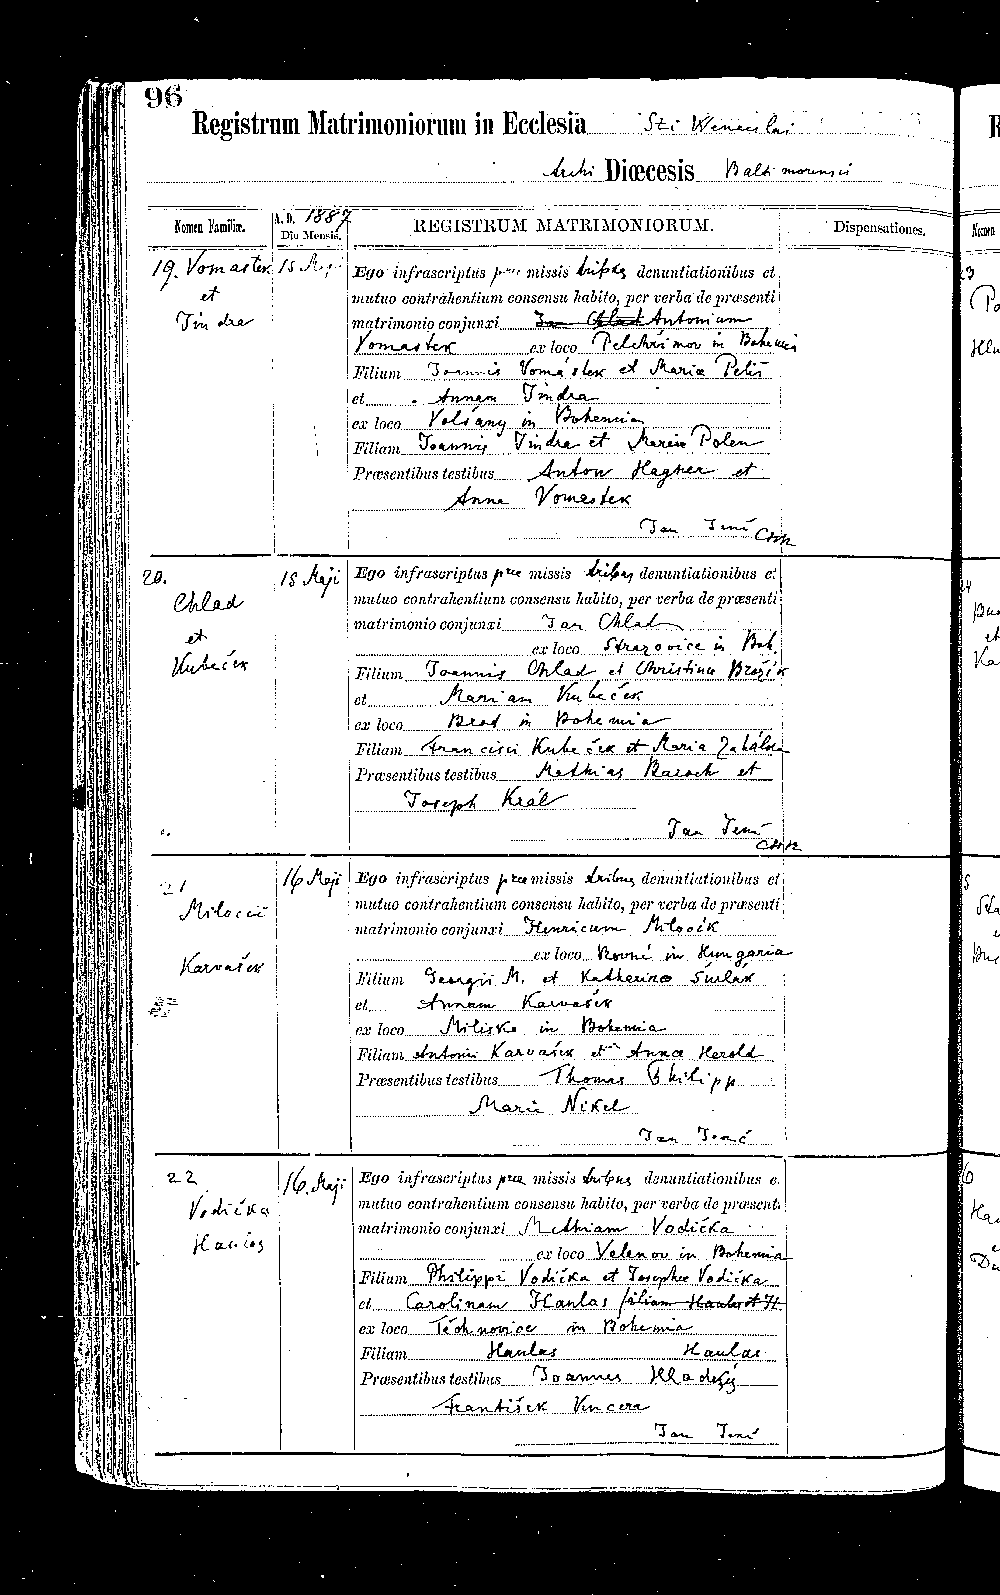 96
Registrum Matrimoniorum in Ecclesia Sti Wenceslai
Archi Diœcesis Baltimorensis
Nomen Familiæ. A. D. 1887 Die Mensis. REGISTRUM MATRIMONIORUM. Dispensationes.
19. Vomastek 15 Maji Ego infrascriptus præ missis tribus denuntiationibus et
et mutuo contrahentium consensu habito, per verba de præsenti
Jindra matrimonio conjunxi Jan Chlad Antonium
Vomastek ex loco Pelchřimov in Bohemia
Filium Joannis Vomástek et Maria Petiš
et Annam Jindra
ex loco Volšany in Bohemia
Filiam Joannis Jindra et Maria Polen
Præsentibus testibus Anton Hagner et
Anna Vomastek
Jan Jený CSSR
20. 15 Maji Ego infrascriptus præ missis tribus denuntiationibus et
Chlad mutuo contrahentium consensu habito, per verba de præsenti
et matrimonio conjunxi Jan Chlad
Kubeček ex loco Strazovice in Boh.
Filium Joannis Chlad et Christina Brožík
et Mariam Kubeček
ex loco Brod in Bohemia
Filiam Francisci Kubeček et Maria
Præsentibus testibus Mathias Baroch et
Joseph Král
Jan Jený
CSSR
21 16 Maji Ego infrascriptus præ missis tribus denuntiationibus et
mutuo contrahentium consensu habito, per verba de præsenti
matrimonio conjunxi Henricum Milocik
Karvašek ex loco Rovné in Hungaria
Filium Georgii M. et Katherina
et Annam Karvašek
ex loco Miliske in Bohemia
Filiam Antonii Karvašek et Anna Herold
Præsentibus testibus Thomas Philipp
Marie Nikel
Jan Jený
22 16. Maji Ego infrascriptus præ missis tribus denuntiationibus e.
Vodička mutuo contrahentium consensu habito, per verba de præsenti
Haulas matrimonio conjunxi Mathiam Vodička
ex loco Velenov in Bohemia
Filium Philippi Vodička et Josepha Vodička
et Carolinam Haulas filiam Haulas et H.
ex loco Těchnovice in Bohemia
Filiam Haulas Haulas
Præsentibus testibus Joannes
František Vincera
Jan Jený